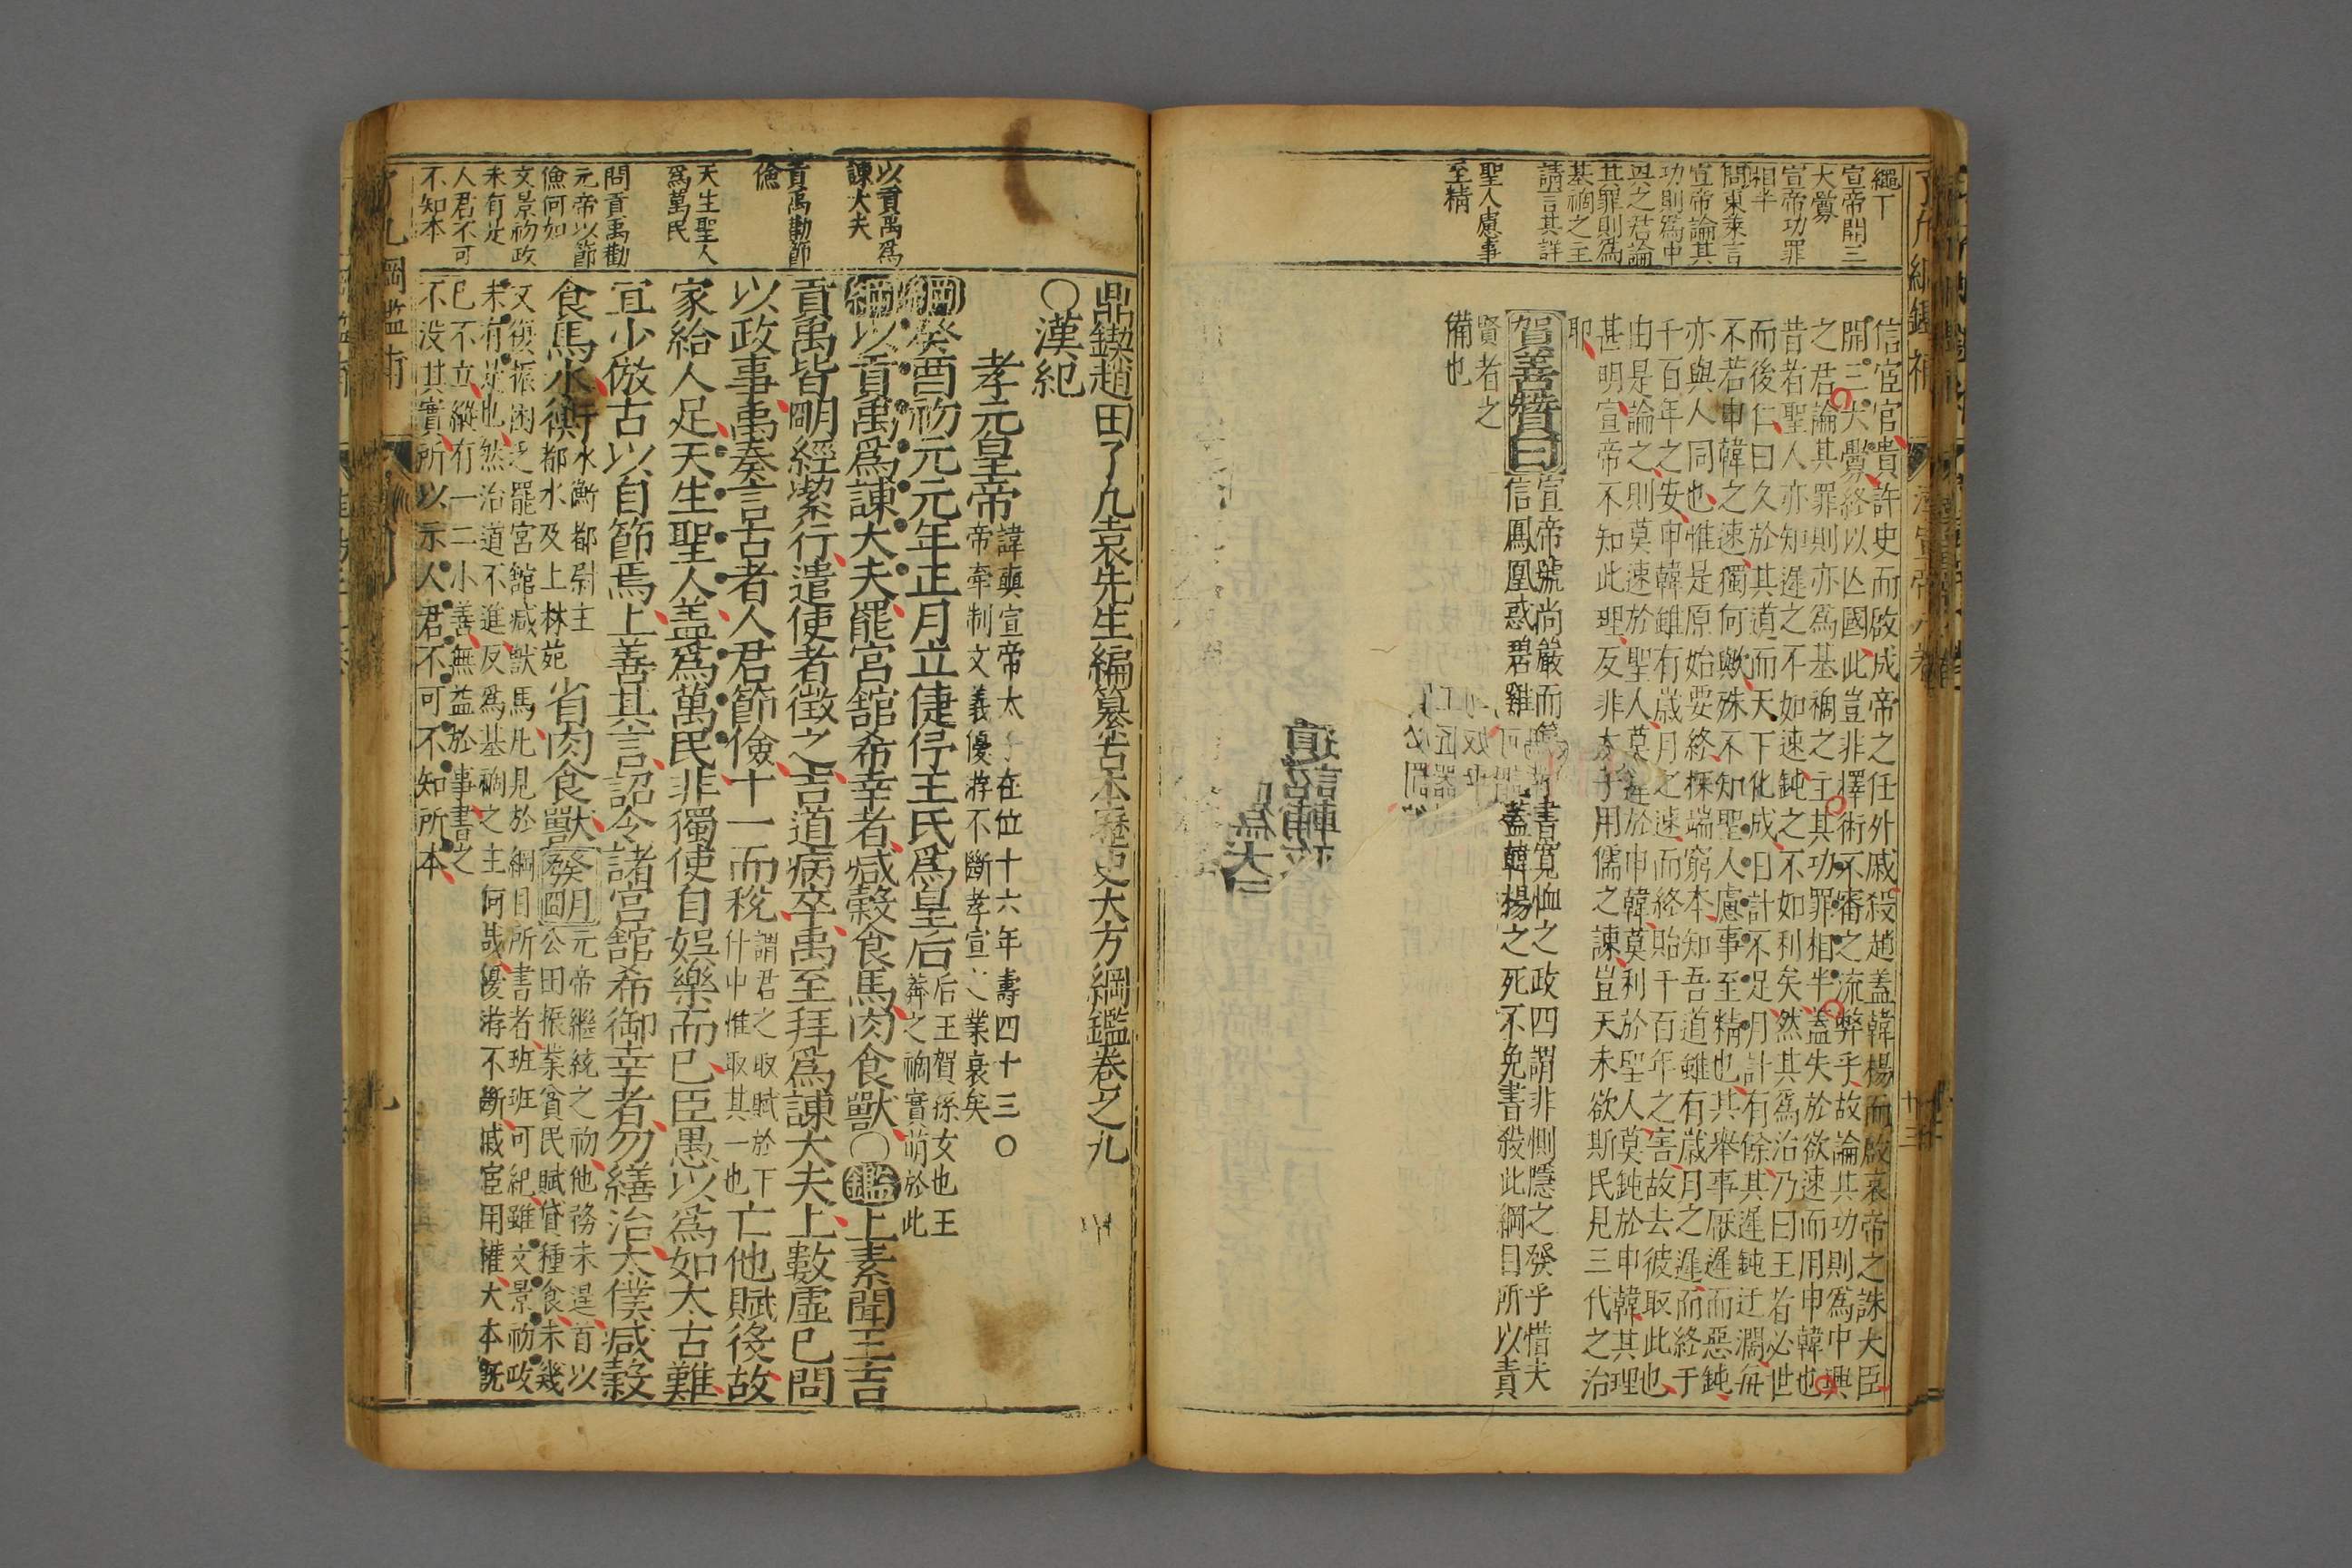 繩下
宣帝開三
大釁
宣帝功罪
相半
問東萊言
宣帝論其
功則爲中
興之君論
其罪則爲
基禍之主
請言其詳
聖人慮事
至精
信宦官貴許史而啟成帝之任外戚殺趙蓋韓楊而啟哀帝之誅大臣
開三大釁終以亾國此豈非擇術不審之流弊乎故論其功則爲中興
之君論其罪則亦爲基禍之主其功罪相半蓋失於欲速而用申韓也
昔若聖人亦知遲之不如速鈍之不如利矣然其爲治乃曰王者必世
而後仁曰久於其道而天下化成日計不足月計有餘其遲鈍迂濶每
不若申韓之速獨何歟殊不知聖人慮事至精也其舉事厭遲而惡鈍
亦與人同也惟是原始要終探端窮本知吾道雖有歲月之遲而終于
千百年之安申韓雖有歲月之速而終貽千百年之害故去彼取此也
由是論之則莫速於聖人莫遲於申韓莫利於聖人莫鈍於申韓其理
甚明宣帝不知此理反非太子用儒之諫豈天未欲斯民見三代之治
耶
賀善贊曰
宣帝號尚嚴而書寬恤之政四謂非惻隱之發乎惜夫
信鳳凰惑碧雞蓋韓楊之死不免書殺此綱目所以責
賢者之
備也
鼎鍥趙田了凡袁先生編纂古本歷史大方綱鑑卷之九
○漢紀
孝元皇帝
諱奭宣帝太子在位十六年壽四十三○
帝牽制文義優游不斷孝宣之業衰矣
綱癸酉初元元年正月立倢伃王氏爲皇后
后王賀孫女也王
莽之禍實萌於此
綱以貢禹爲諫大夫罷宮舘希幸者減穀食馬肉食獸○鑑上素聞王吉
貢禹皆明經潔行遣使者徵之吉道病卒禹至拜爲諫大夫上數虛己問
以政事禹奏言古者人君節儉十一而稅
謂君之取賦於下
什中惟取其一也
亡他賦役故
家給人足天生聖人蓋爲萬民非獨使自娛樂而已臣愚以爲如太古難
宜少倣古以自節焉上善其言詔令諸宮舘希御幸者勿繕治太僕減穀
食馬水衡
水衡都尉主
都水及上林苑
省肉食獸
發明
元帝繼統之初他務未遑首以
公田振業貧民賦貸種食未幾
又復振困乏罷宮舘減獸馬凡見於綱目所書者班班可紀雖文景初政
未有是也然治道不進反爲基禍之主何哉優游不斷戚宦用權大本旣
已不立縱有一二小善無益於事書之
不没其實所以示人君不可不知所本
以貢禹爲
諫大夫
貢禹勸節
儉
天生聖人
爲萬民
問貢禹勸
元帝以節
儉何如
文景初政
未有是
人君不可
不知本